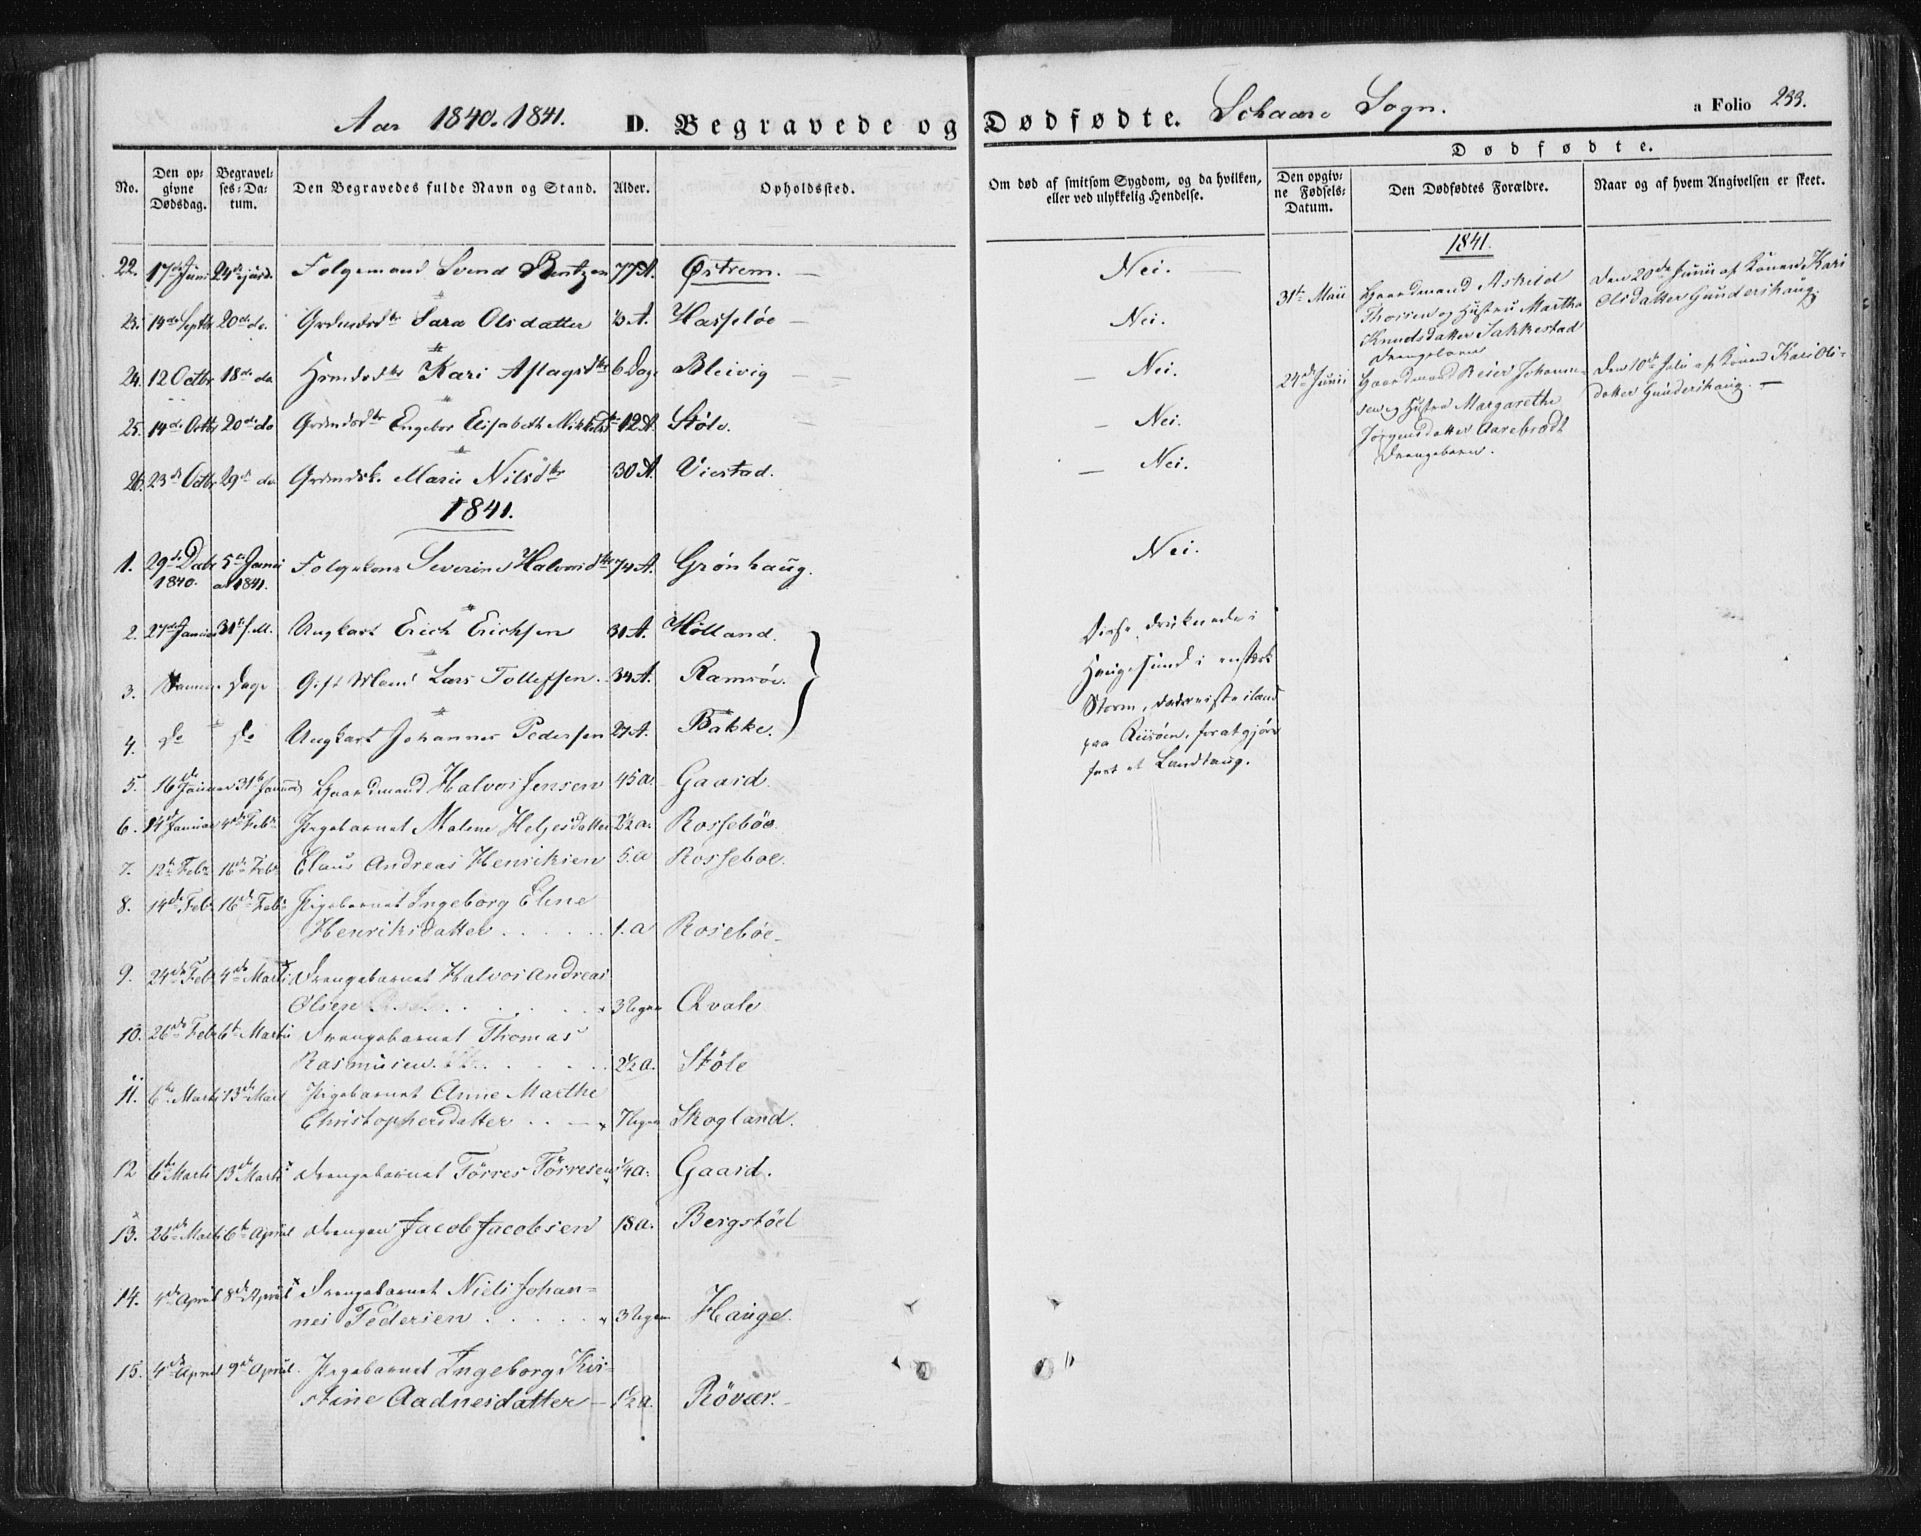 Aar 1840.1841. D. Begravede og Dødfødte. Schaare Sogn. a Folio 233.
Dødfødte.
No. Den opgivne Dødsdag. Begravelses-Datum. Den Begravedes fulde Navn og Stand. Alder. Opholdssted. Om død af smitsom Sygdom, og da hvilken, eller ved ulykkelig Hendelse. Den opgivne Fødsels-Datum. Den Dødfødtes Forældre. Naar og af hvem Angivelsen er skeet.
22. 17de Juni 24de ejusd. Folgemand Svend Bentzen 77 A. Østrem. — Nei.
23. 14de Septbr 20de do. Grdmdsdtr Sara Olsdatter A. Hasseløe — Nei.
24. 12 Octbr 18de do Hsmdsdtr Kari Aslagsdtr 6 Dage Bleivig — Nei.
25. 14de Octbr 20de do Grdmdsdtr Engebor Elisabeth Mikkelsdtr 12 A. Støle. — Nei.
26. 23de Octbr 29de do Grdmdsk. Marie Nilsdtr 30 A. Viestad. — Nei.
1841.
1. 29de Debr 1840. 5te Januari a 1841. Folgekone Severine Halvorsdtr 74 A. Grønhaug. Nei.
2. 27de Januar 31te s. M. Ungkarl Erich Erichsen 31 A. Hølland.
3. Samme Dage Gift Mand Lars Tollefsen. 34 A. Ramsøe.
4. do do Ungkarl Johannes Pedersen 27 A. Bakke.
Disse druknede i
Haugesund i en stærk
Storm, da de reiste iland
paa Riisøen, for at gjøre
fast et Landtaug.
5. 16de Januar 31te Januar Gaardmand Halvor Jensen 45 a. Gaard.
6. 14de Januar 4de Febr. Pigebarnet Malene Helgesdatter 2½ a. Rossebøe.
7. 12te Febr 16de Febr Claus Andreas Henriksen 5. a Rosseboe.
8. 14de Febr 16de Febr Pigebarnet Ingeborg Eline
Henriksdatter . . . . . . 1. a Rosebøe.
9. 24de Febr 4de Marti Drengebarnet Halvor Andreas
Olsen . . . . . . 3 Ugen Qvale
10. 26de Febr 6te Martii Drengebarnet Thomas
Rasmusen. . . . . . 2½ a. Støle
11. 6te Marti 13de Marti Pigebarnet Anne Marthe
Christophersdatter . . — 7 Ugen Skogland.
12 6te Marti 13de Marti Drengebarnet Törres Törresen ¼ a. Gaard.
13. 26de Marti 6te April Drengen Jacob Jacobsen 18 a. Bergstød
14. 4de April 8de April Drengebarnet Niels Johan-
nes Pedersen . . . . . 3 Ugen Hauge.
15. 4de April 9de April. Pigebarnet Ingeborg Kir-
stine Aadnesdatter — 1½ a. Røvær.
1841.
31te Maii Gaardmand Askild
Thorsen og Hustru Martha
Knudsdatter Sakkestad
Drengebarn
Den 20de Junii af Konen Kari
Olsdatter Gundershaug.
24de Junii Gaardmand Reier Johann-
sen og Hustru Margarethe
Jörgensdatter Aarebrødt
Drengebarn.
Den 10de Julii af Konen Kari Ols-
datter Gundershaug. —